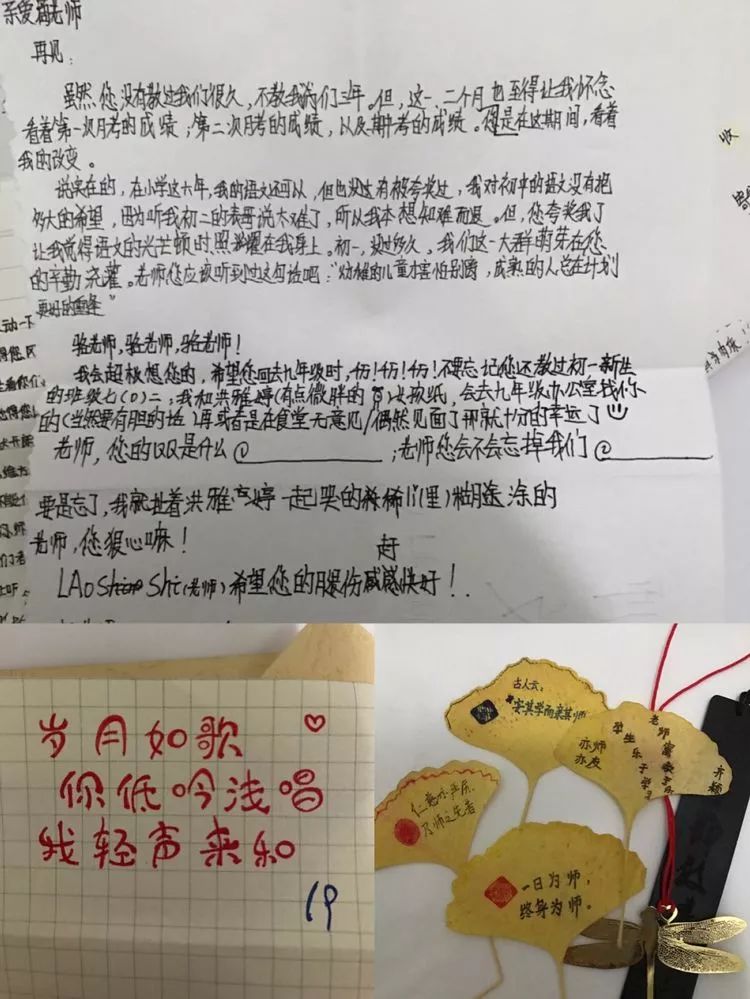 亲爱
老师
再见：
虽然您没有教过我们很久，不教我们三年。但，这一、二个月也至得让我怀念
看着第一次月考的成绩；第二次月考的成绩，以及期考的成绩。您是在这期间，看着
我的改变。
说实在的，在小学这六年，我的语文还可以，但也没过有被夸奖过，我对初中的语文没有抱
多大的希望，因为听我初二的表哥说太难了，所以我本想知难而退。但，您夸奖我了
让我觉得语文的光芒顿时照耀在我身上。初一，没过多久，我们这一大群萌芽在您
的辛勤浇灌。老师您应该听到过这句话吧："幼稚的儿童才害怕别离，成熟的人总在计划
更好的重逢"
骆老师，骆老师，骆老师！
我会超极想您的，希望您回去九年级时，仂！仂！仂！不要忘记您还教过初一新生
的班级七(0)二；我和洪雅婷(有点微胖的女孩纸，会去九年级办公室找你
的(当然要有胆的话)再或者是在食堂无意见/偶然见面了那就十分的幸运了
老师，您的QQ是什么@ ；老师您会不会忘掉我们@
要是忘了，我就扯着洪雅婷一起哭的稀稀li(里)糊涂的
老师，您狠心嘛！
赶
LAO Shi(老师)希望您的腿伤快好！
岁月如歌
你低吟浅唱
我轻声来和
19
古人云：
安其学而亲其师
亦师
亦友
老师
学生
乐
子
齐颖
仁慈
乃师之先者
一日为师，
终身为师。